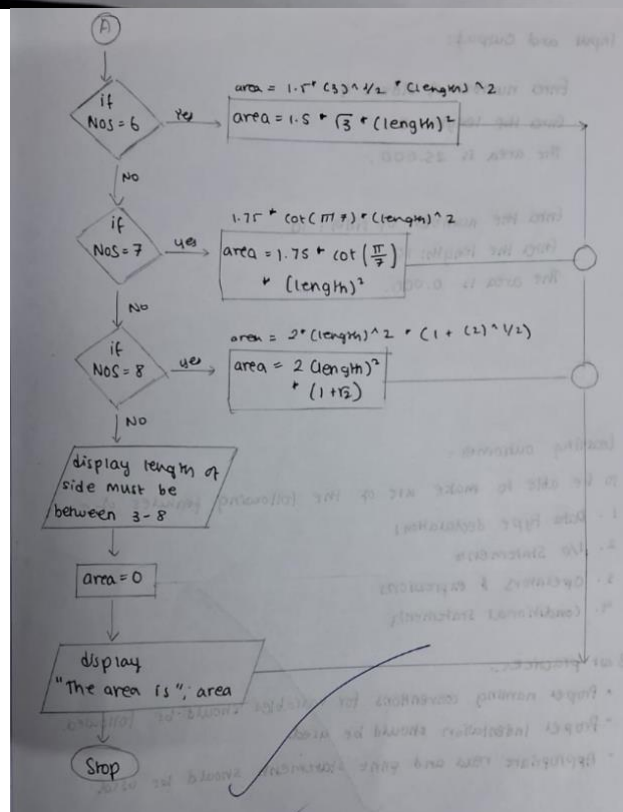 A
if
NOS = 6
Yes
area = 1.5 * (3)^1/2 * (length)^2
area = 1.5 * √3 * (length)²
NO
if
NOS = 7
yes
1.75 * cot(π/7) * (length)^2
area = 1.75 * cot (π/7)
* (length)²
NO
if
NOS = 8
yes
area = 2*(length)^2 * (1 + (2)^1/2)
area = 2 (length)²
* (1+√2)
NO
display length of
side must be
between 3-8
area = 0
display
"The area is"; area
Stop